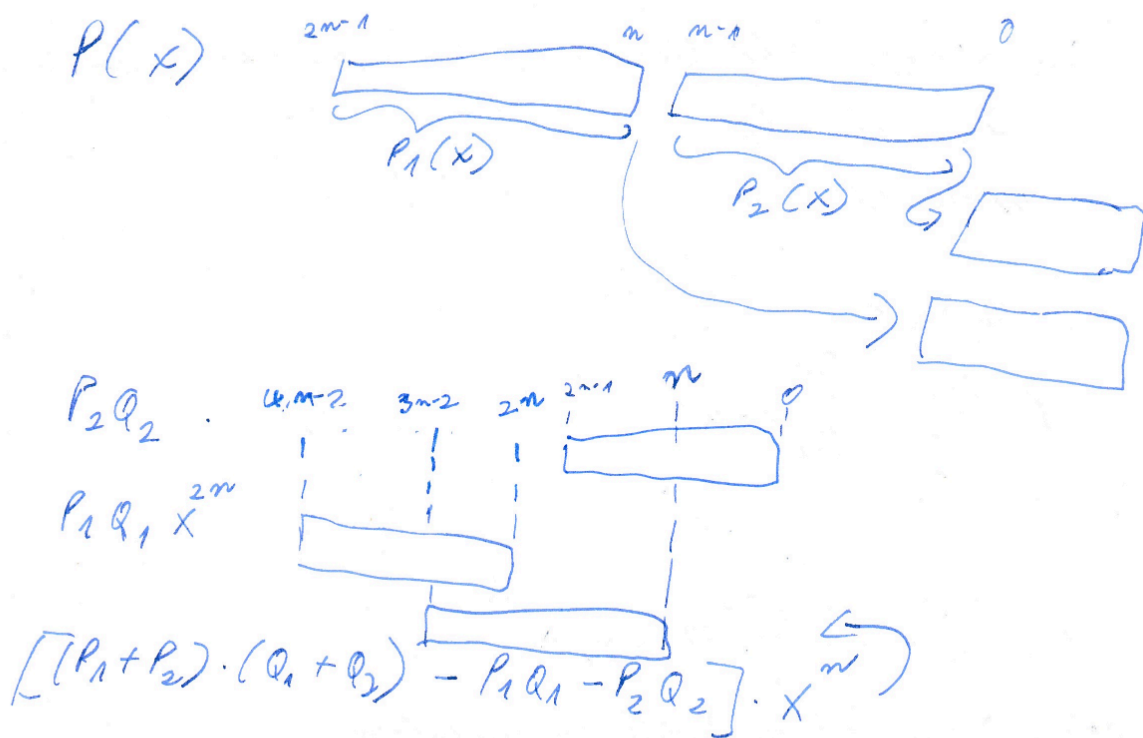 2n-1 n n-1 0
P(x)
P₁(x) P₂(x)
P₂Q₂ . 4n-2 3n-2 2n 2n-1 n 0
P₁Q₁X²ⁿ
[(P₁+P₂).(Q₁+Q₂) - P₁Q₁ - P₂Q₂] . Xⁿ